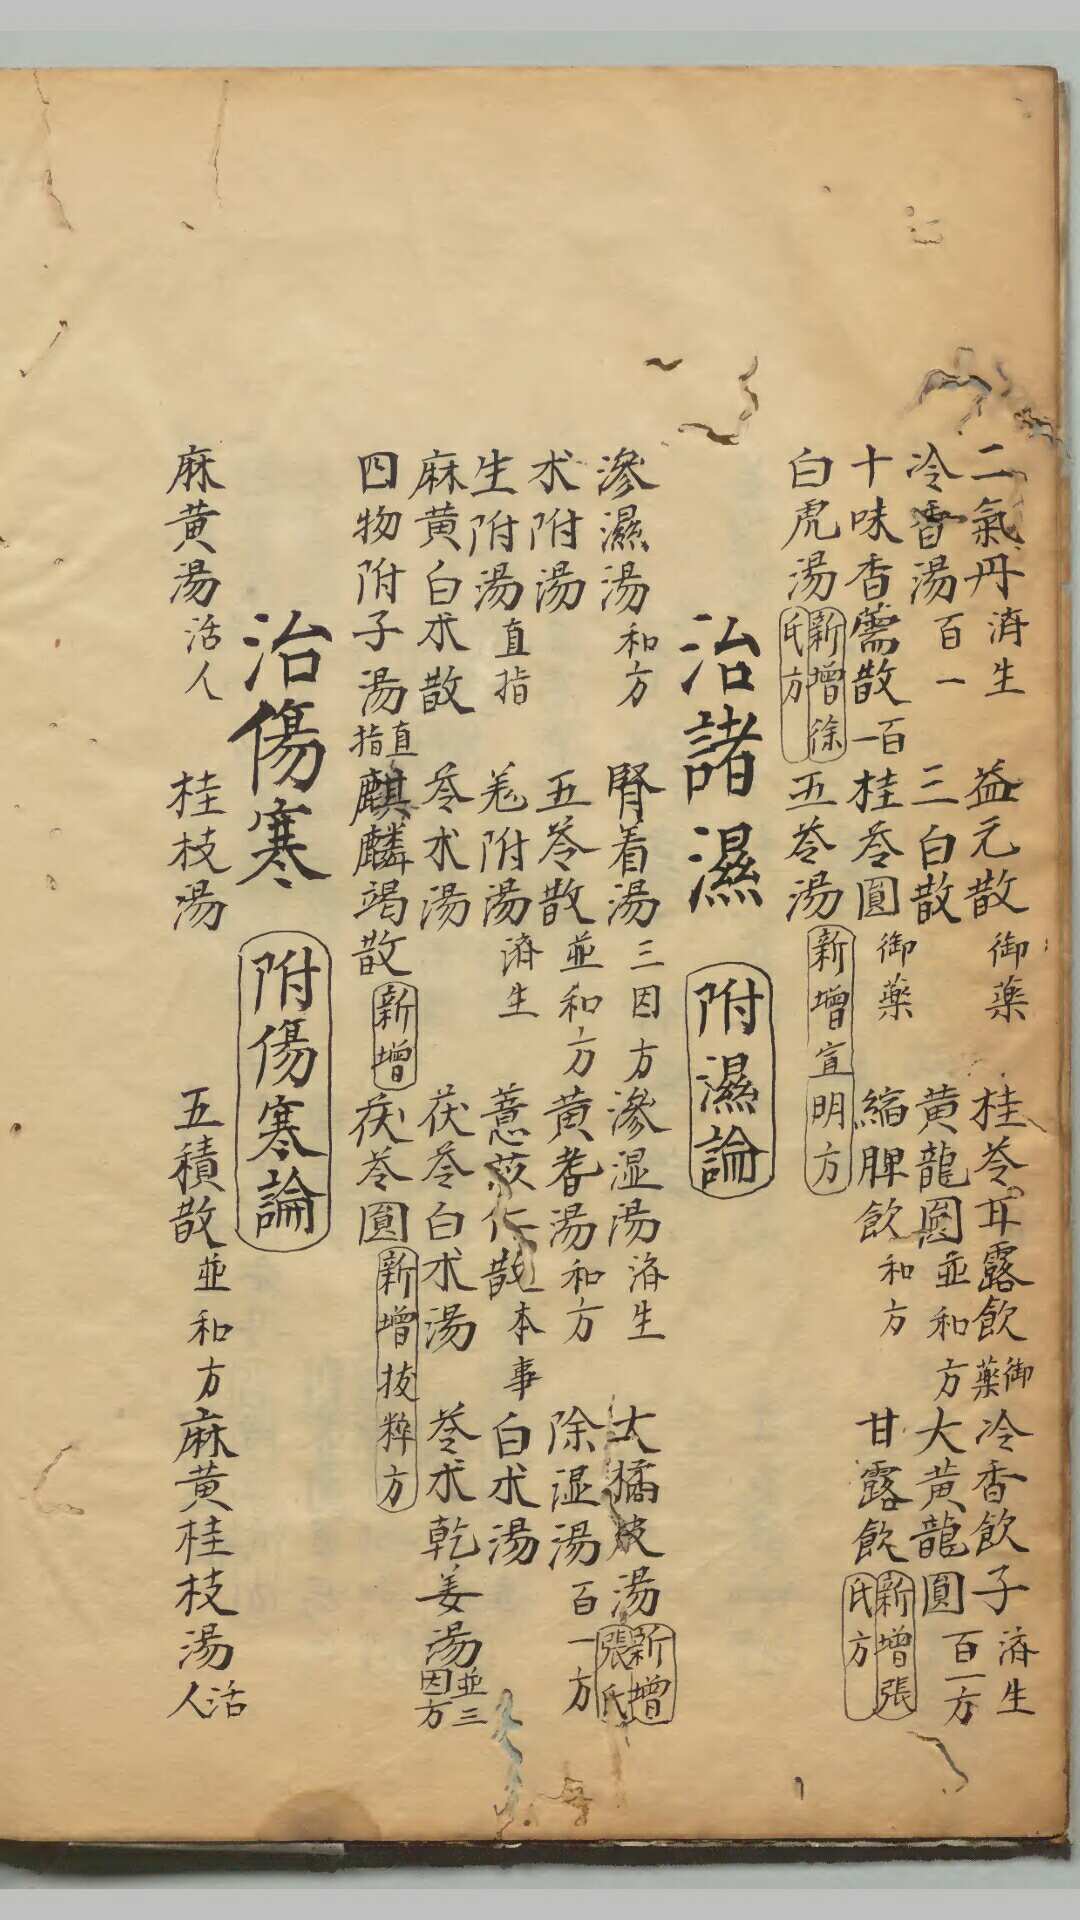 二氣丹濟生 益元散御藥 桂苓甘露飲御藥 冷香飲子濟生
冷香湯百一 三白散 黄龍圓並和方 大黄龍圓百一方
十味香薷散百一 桂苓圓御藥 縮脾飲和方 甘露飲新增張氏方
白虎湯新增徐氏方 五苓湯新增宣明方
治諸濕 附濕論
滲濕湯和方 腎着湯三因方 滲湿湯済生 大橘皮湯新增張氏
朮附湯 五苓散並和方 黄耆湯和方 除湿湯百一方
生附湯直指 羌附湯濟生 薏苡仁散本事 白朮湯
麻黄白朮散 苓朮湯 茯苓白朮湯 苓朮乾姜湯並三因方
四物附子湯直指 麒麟竭散新增 茯苓圓新增拔粹方
治傷寒 附傷寒論
麻黄湯活人 桂枝湯 五積散並和方 麻黄桂枝湯活人